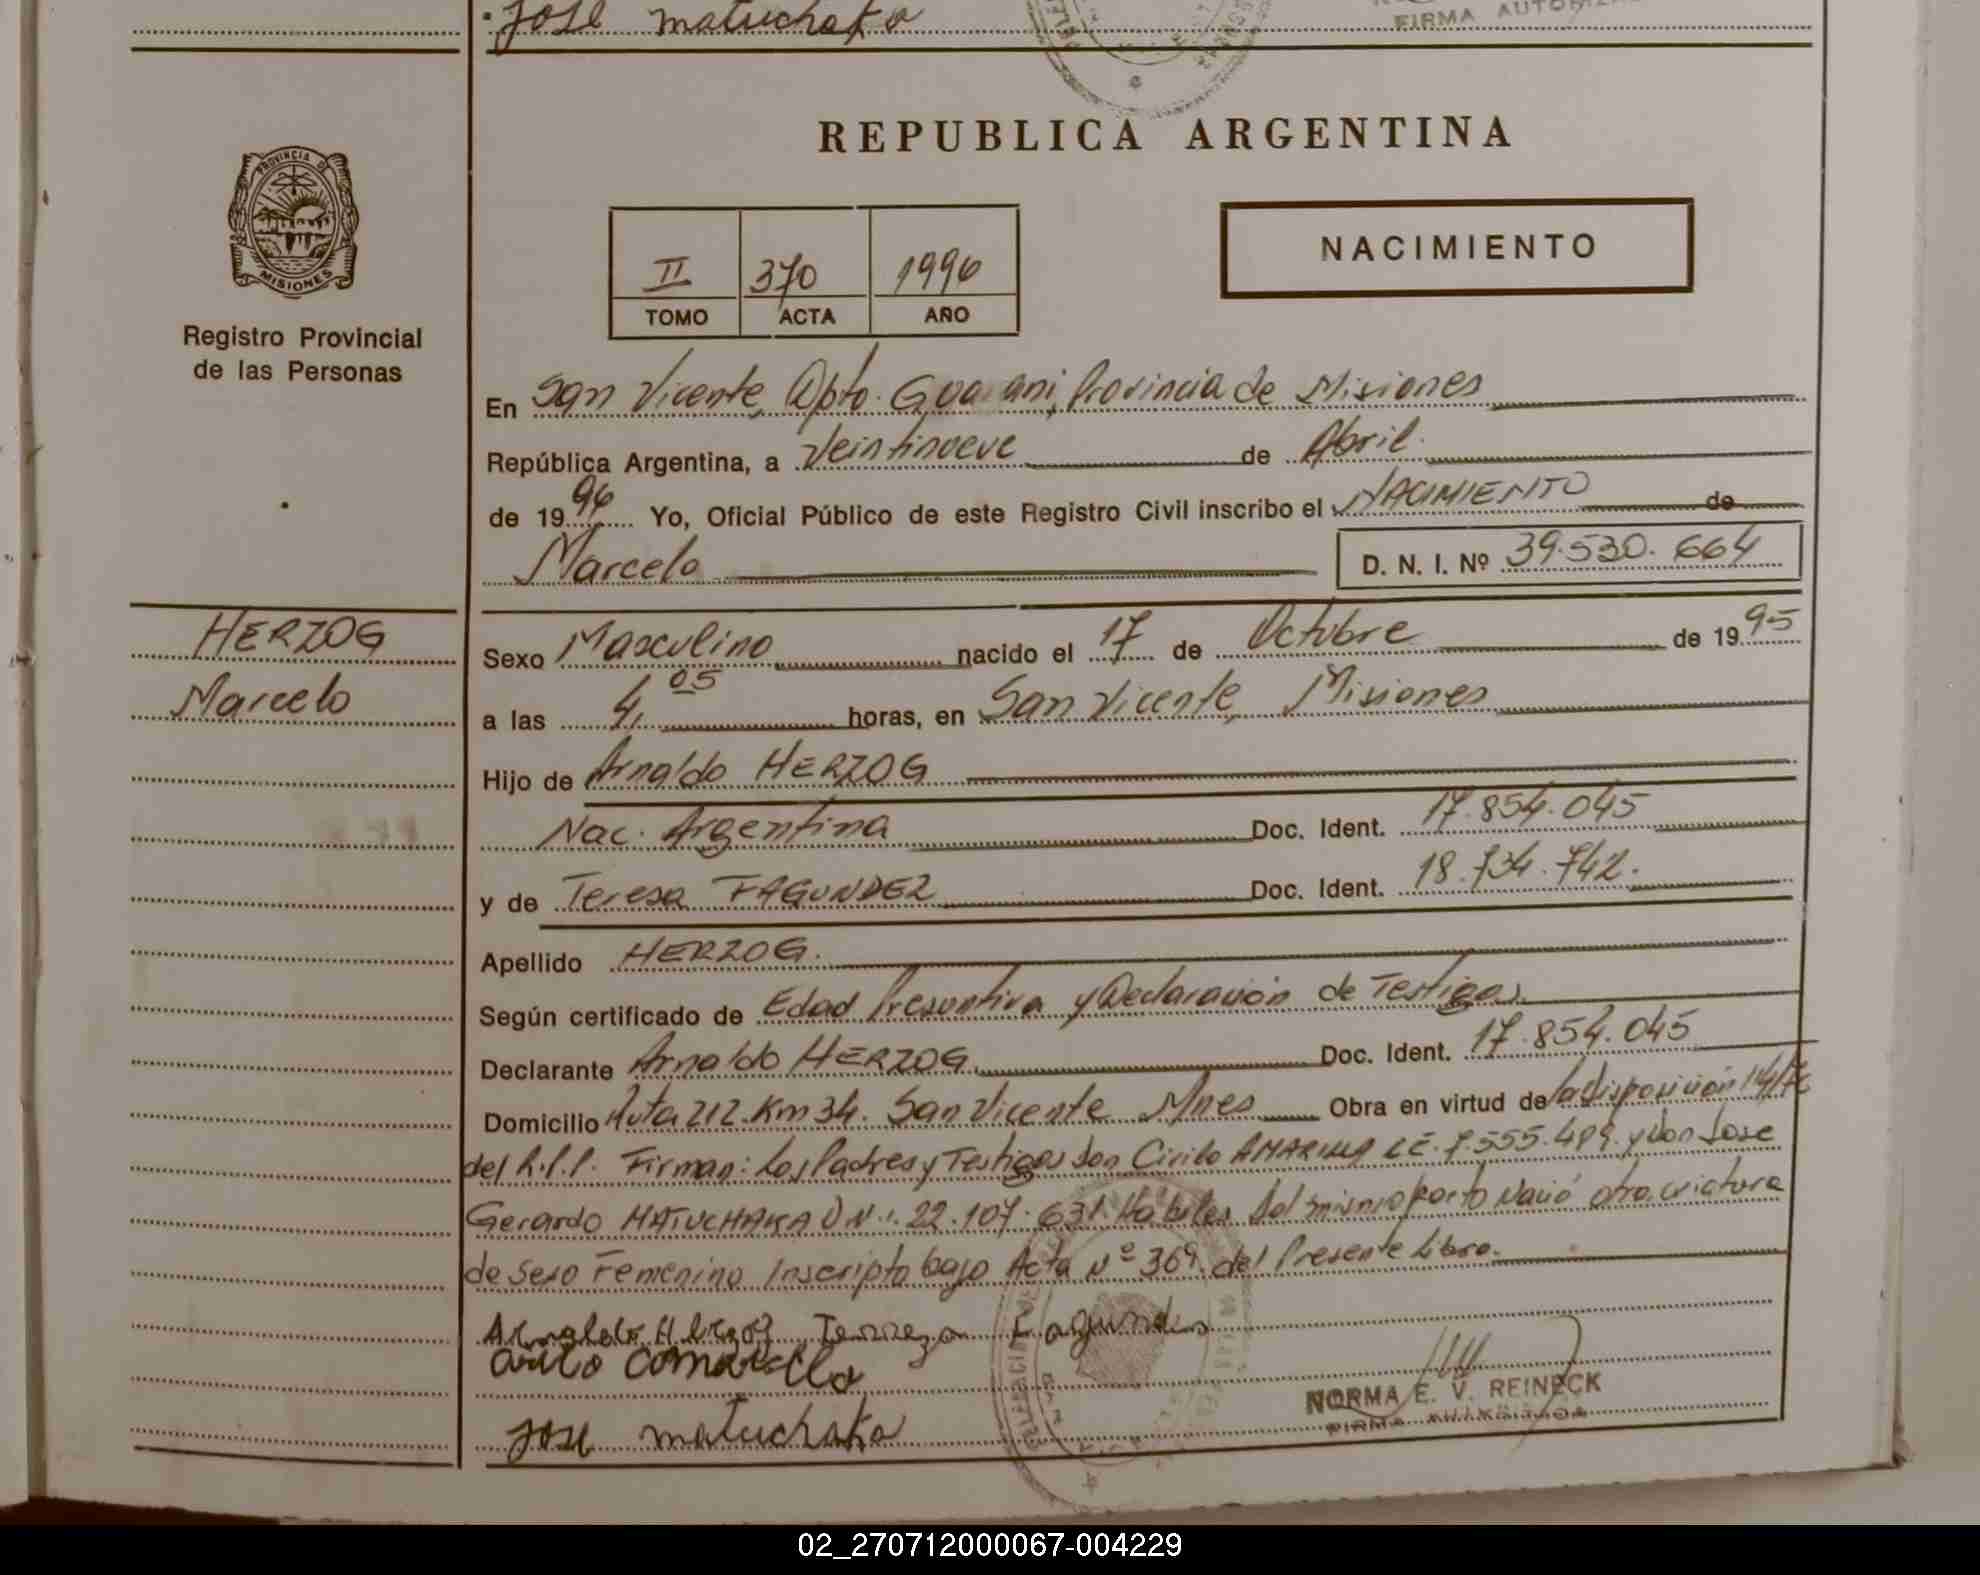 Jose matuchaka
FIRMA AUTORIZA
REPUBLICA ARGENTINA
PROVINCIA DE
MISIONES
Registro Provincial
de las Personas
II 370 1996
TOMO ACTA AÑO
NACIMIENTO
En San Vicente, Dpto. Guarani, Provincia de Misiones
República Argentina, a Veintinueve de Abril.
de 1996 Yo, Oficial Público de este Registro Civil inscribo el NACIMIENTO de
Marcelo D. N. I. Nº 39.530.664
HERZOG
Marcelo
Sexo Masculino nacido el 17 de Octubre de 1995
a las 4,05 horas, en San Vicente, Misiones
Hijo de Arnaldo HERZOG
Nac. Argentina Doc. Ident. 17.854.045
y de Teresa FAGUNDEZ Doc. Ident. 18.734.742.
Apellido HERZOG.
Según certificado de Edad Presuntiva y Declaración de Testigos.
Declarante Arnaldo HERZOG. Doc. Ident. 17.854.045
Domicilio Ruta 212. Km 34. San Vicente Mnes Obra en virtud de la disposición
del R.P.P. Firman: Los Padres y Testigos Don Cirilo AMARILLA y Don Jose
Gerardo MATUCHAKA Hábiles Del mismo parto Nació otra criatura
de Sexo Femenino Inscripto bajo Acta Nº 369. del Presente Libro.
Arnaldo Herzog Terreza Fagundes
Jose matuchaka
NORMA E. V. REINECK
FIRMA AUTORIZADA
02_270712000067-004229